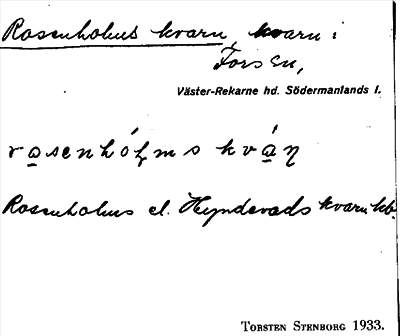 Rosenholms kvarn, kvarn i
Fors sn,
Väster-Rekarne hd. Södermanlands l.
rasenhólms kván
Rosenholms el. Hyndevads kvarn kb.
TORSTEN STENBORG 1933.